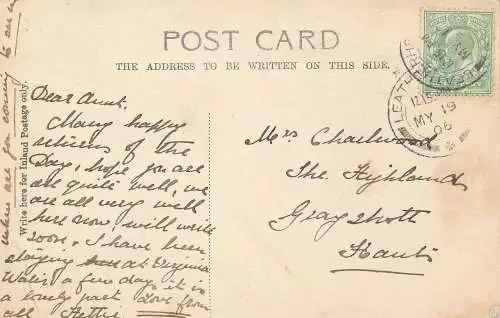 POST CARD
THE ADDRESS TO BE WRITTEN ON THIS SIDE.
Write here for Inland Postage only.
Dear Aunt.
Many happy
returns of the
Day, hope you are
all quite well, we
are all very well
here now, will write
soon, I have been
staying at Virginia
Water a few days, it is
a lovely part Love from
all Hettie
when are you coming to see
Mrs Charlwood
The Highlands
Grayshott
Hants
LEATHERHEAD
12.15 PM
MY 19
06